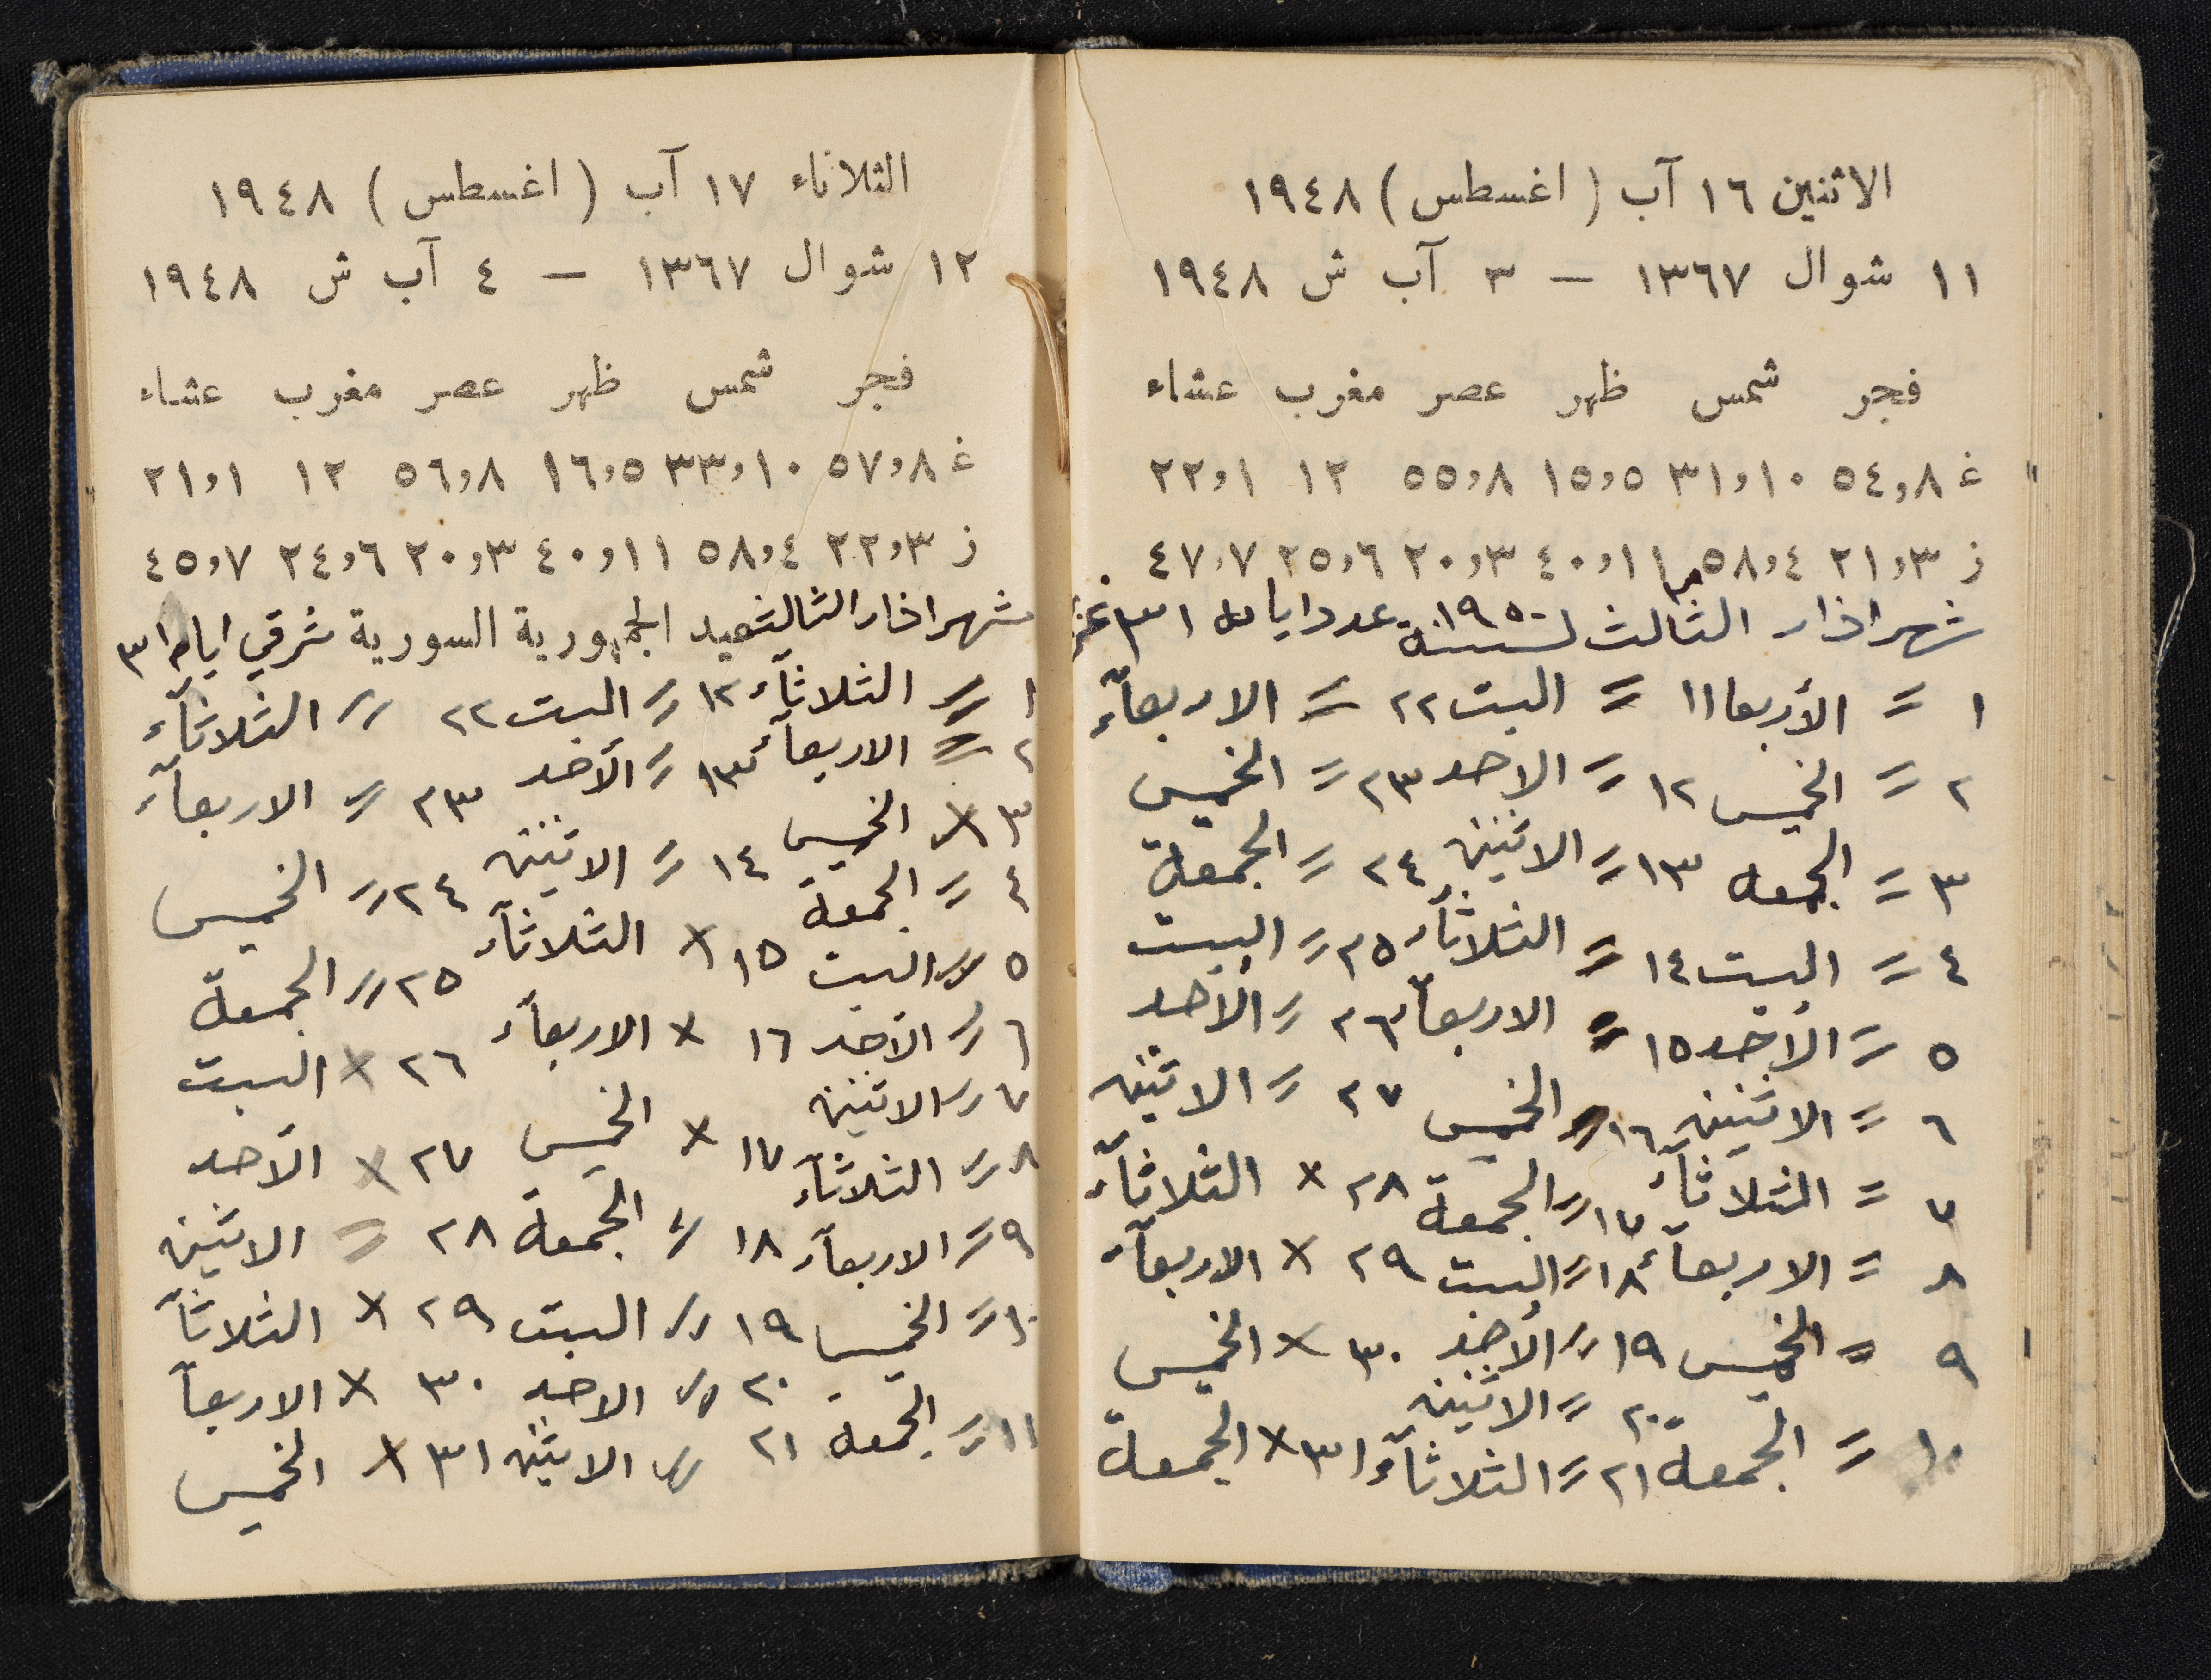 الاثنين ١٦ آب (اغسطس) ١٩٤٨
١١ شوال ١٣٦٧ — ٣ آب ش ١٩٤٨
فجر شمس ظهر عصر مغرب عشاء
غ ٥٤,٨ ٣١,١٠ ١٥,٥ ٥٥,٨ ١٢ ٢٢,١
ز ٢١,٣ ٥٨,٤ ٤٠,١١ ٢٠,٣ ٢٥,٦ ٤٧,٧
شهر اذار الثالث لسنة ١٩٥٠ عدد ايامه ٣١
١ = الأربعا ١١ = السبت ٢٢ = الاربعآء
٢ = الخميس ١٢ = الاحد ٢٣ = الخميس
٣ = الجمعه ١٣ = الاثنين ٢٤ = الجمعة
٤ = السبت ١٤ = الثلاثآء ٢٥ = السبت
٥ = الأحد ١٥ = الاربعآء ٢٦ = الأحد
٦ = الاثنين ١٦ = الخميس ٢٧ = الاثنين
٧ = الثلاثآء ١٧ = الجمعة ٢٨ × الثلاثآء
٨ = الاربعآء ١٨ = السبت ٢٩ × الاربعآء
٩ = الخميس ١٩ = الأحد ٣٠ × الخميس
١٠ = الجمعة ٢٠ = الاثنين
٢١ = الثلاثآء ٣١ × الجمعة
الثلاثاء ١٧ آب (اغسطس) ١٩٤٨
١٢ شوال ١٣٦٧ — ٤ آب ش ١٩٤٨
فجر شمس ظهر عصر مغرب عشاء
غ ٥٧,٨ ٣٣,١٠ ١٦,٥ ٥٦,٨ ١٢ ٢١,١
ز ٢٢,٣ ٥٨,٤ ٤٠,١١ ٢٠,٣ ٢٤,٦ ٤٥,٧
شهر اذار الثالث عيد الجمهورية السورية شرقي ايامه ٣١
١ = الثلاثآء ١٢ = السبت ٢٢ = الثلاثآء
٢ = الاربعآء ١٣ = الأحد ٢٣ = الاربعآء
٣ × الخميس ١٤ = الاثنين ٢٤ = الخميس
٤ = الجمعة ١٥ × الثلاثآء ٢٥ = الجمعة
٥ = السبت ١٦ × الاربعآء ٢٦ × السبت
٦ = الأحد ١٧ × الخميس ٢٧ × الأحد
٧ = الاثنين ١٨ = الجمعة ٢٨ = الاثنين
٨ = الثلاثآء ١٩ = السبت ٢٩ × الثلاثآ
٩ = الاربعآء ٢٠ = الاحد ٣٠ × الاربعآ
١٠ = الخميس ٢١ = الاثنين ٣١ × الخميس
١١ = الجمعة